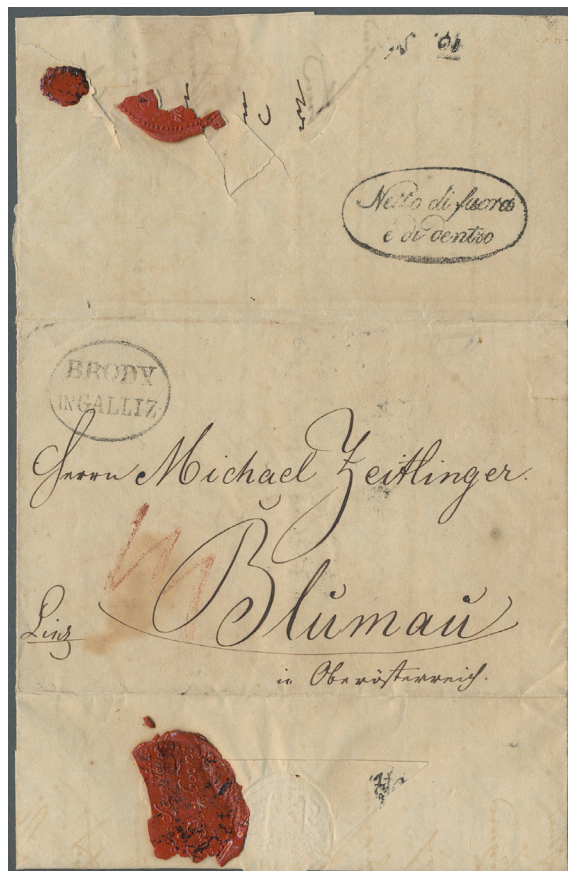 Netto di fuora
e di dentro
BRODY
IN GALLIZ.
Herrn Michael Zeitlinger.
Blŭmaŭ
Linz
in Oberösterreich.